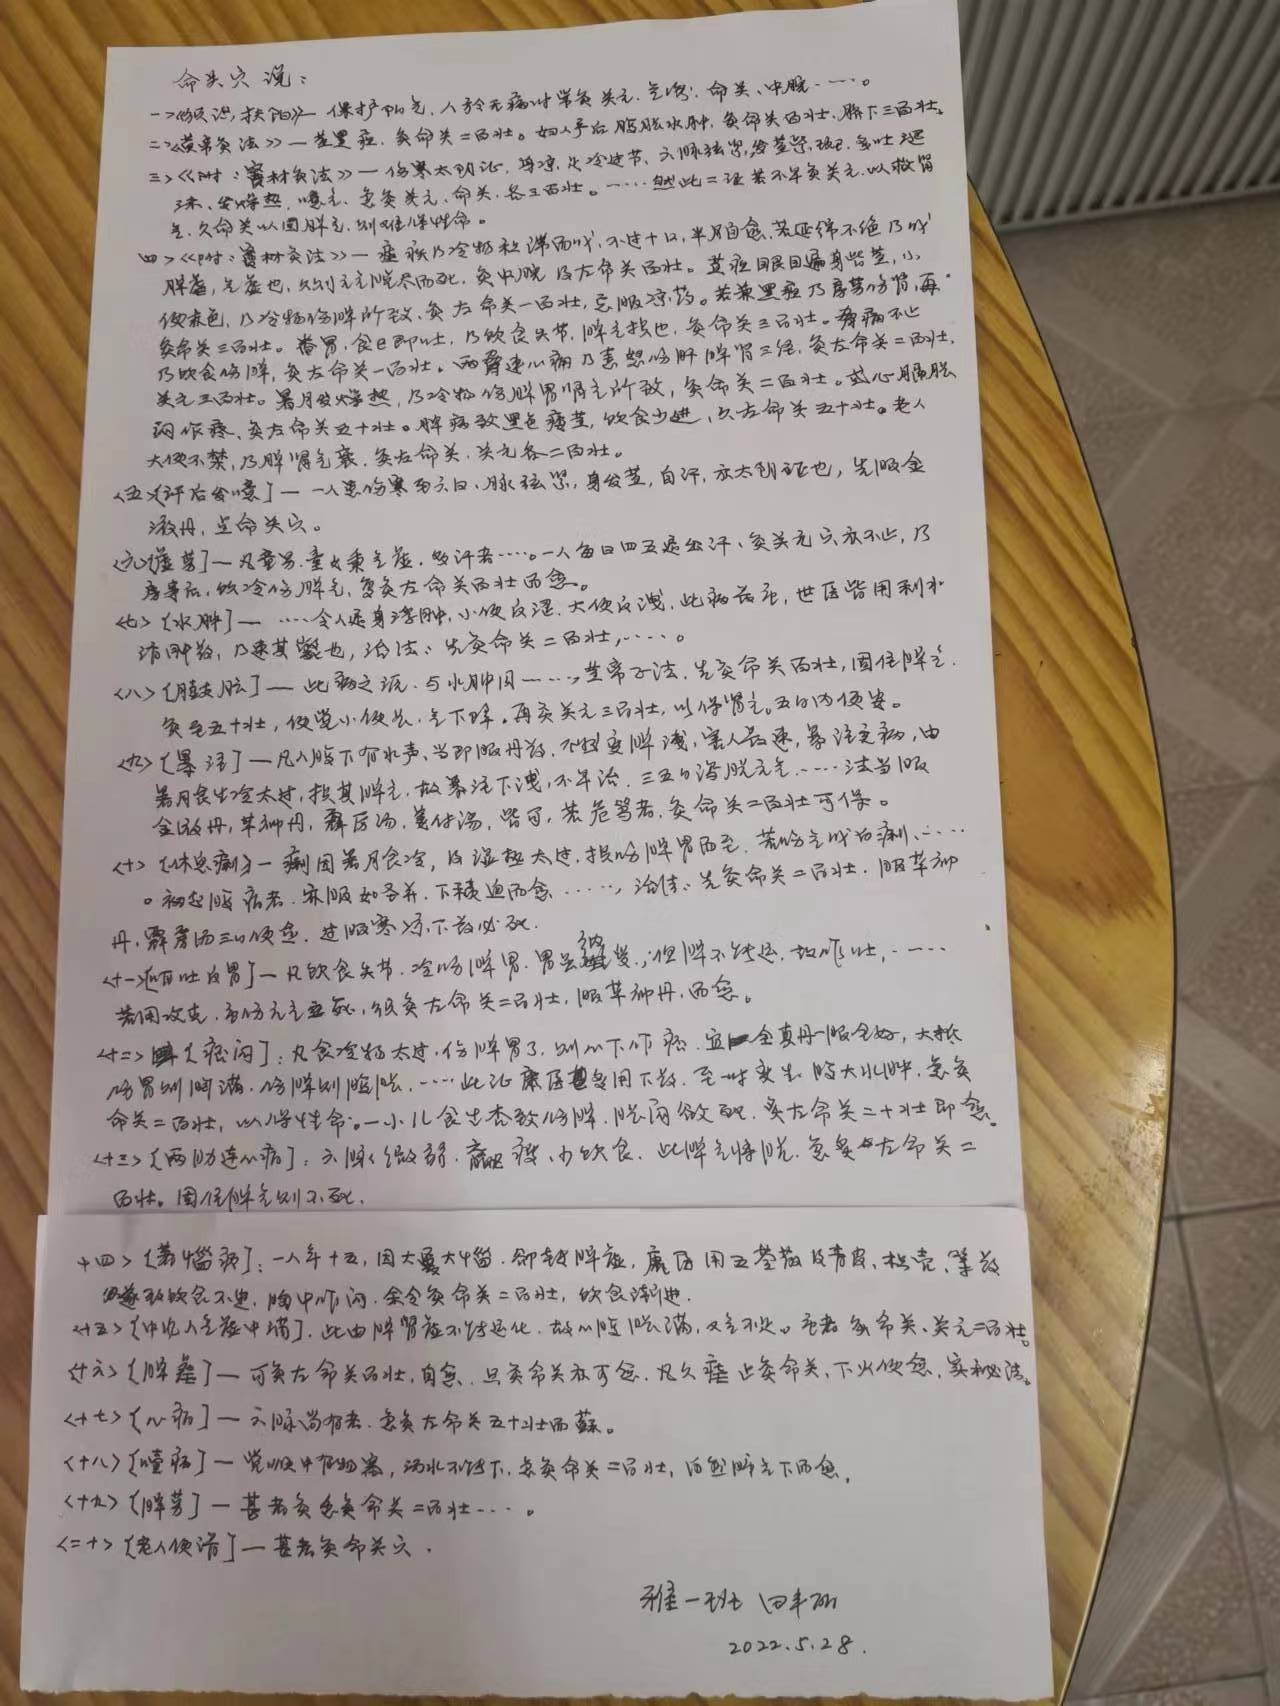 命关穴说：
一><须识扶阳>—保护阳气，人于无病时常灸关元、气海、命关、中脘……。
二><黄帝灸法>>—黄黑疸，灸命关二百壮。妇人产后腹胀水肿，灸命关百壮，脐下三百壮。
三><<附：窦材灸法>>—伤寒太阴证，身凉足冷过节，六脉弦紧，发黄紫斑，多吐涎
沫，发燥热，噫气，急灸关元、命关，各三百壮。……然此二证若不早灸关元，以救肾
气，灸命关以固脾气，则难保性命。
四><<附：窦材灸法>>—疟疾乃冷物积滞而成，不过十日，半月自愈，若延绵不绝乃成
脾疟，气虚也，久则元气脱尽而死，灸中脘及左命关百壮。黄疸眼目遍身皆黄，小
便赤色，乃冷物伤脾所致，灸左命关一百壮，忌服凉药。若兼黑疸乃房劳伤肾，再
灸命关三百壮。番胃，食已即吐，乃饮食失节，脾气损也，灸命关三百壮。 不止
乃饮食伤脾，灸左命关一百壮。两胁连心痛乃恚怒伤肝脾肾三经，灸左命关二百壮，
关元三百壮。暑月发燥热，乃冷物伤脾胃肾气所致，灸命关二百壮。或心膈胀
闷作疼，灸左命关五十壮。脾病致黑色痿黄，饮食少进，灸左命关五十壮。老人
大便不禁，乃脾肾气衰，灸左命关、关元各二百壮。
<五>[汗后发噫]—一人患伤寒至六日，脉弦紧，身发黄，自汗，亦太阴证也，先服金
液丹，点命关穴。
<六>[虚劳]—凡童男、童女禀气虚，多汗者……。一人每日四五遍出汗，灸关元穴亦不止，乃
房事后，饮冷伤脾气，复灸左命关百壮而愈。
<七>[水肿]—……令人遍身浮肿，小便反涩，大便反泄，此病最重，世医皆用利水
消肿药，乃速其毙也，治法：先灸命关二百壮，……。
<八>[臌胀]—此病之源，与水肿同……，黄帝正法，先灸命关百壮，固住脾气，
灸至五十壮，便觉小便长，气下降。再灸关元三百壮，以保肾气，五日内便安。
<九>[暴注]—凡人腹下有水声，当即服丹药，不然变脾泄，害人最速，暴注之病，由
暑月食生冷太过，损其脾气，故暴注下泄，不早治，三五日泻脱元气……法当服
金液丹，草神丹，霹雳汤，姜附汤，皆可，若危笃者，灸命关二百壮可保。
<十>[休息痢]—痢因暑月食冷，及湿热太过，损伤脾胃而至，若伤气成白痢，……
。初起腹痛者，亦服如圣并，下积迫而愈……，治法：先灸命关二百壮，服草神
丹，霹雳汤三日便愈，过服寒凉下药必死.
<十一>[内吐反胃]—凡饮食失节，冷伤脾胃，胃虽能受，但脾不转运，故作吐，……
若用攻克，重伤元气立死，须灸左命关二百壮，服草神丹，而愈。
<十二>[痞闷]：凡食冷物太过，伤脾胃了，则心下作痞，宜 全真丹一服全好，大抵
伤胃则满，伤脾则胀，……此证庸医多用下药，至一时变生腹大水肿，急灸
命关二百壮，以保性命。一小儿食生杏致伤脾，胀闷欲死，灸左命关二十壮即愈。
<十三>[两胁连心痛]：六脉微弱，羸瘦，少饮食，此脾气将脱，急灸左命关二
百壮。固住脾气则不死.
十四>[著恼病]：一人年十五，因大忧大恼，却转脾虚，庸医用五苓散及青皮，枳壳，等药
遂致饮食不进，胸中作闷，余令灸命关二百壮，饮食渐进.
<十五>[中风人气虚中满]，此由脾肾虚不转运化，故心腹胀满，又气不足。重者灸命关、关元二百壮。
<十六>[脾疟]—可灸左命关百壮，自愈，只灸命关亦可愈，凡久疟止灸命关，下火便愈，实秘法。
<十七>[心痛]—六脉尚有者，急灸左命关五十壮而蘇。
<十八>[噎病]—觉喉中有物塞，汤水不能下，急灸命关二百壮，自然脾气下而愈.
<十九>[脾劳]—甚者灸急灸命关二百壮……。
<二十>[老人便滑]—甚者灸命关穴.
雅一班 田丰研
2022.5.28.